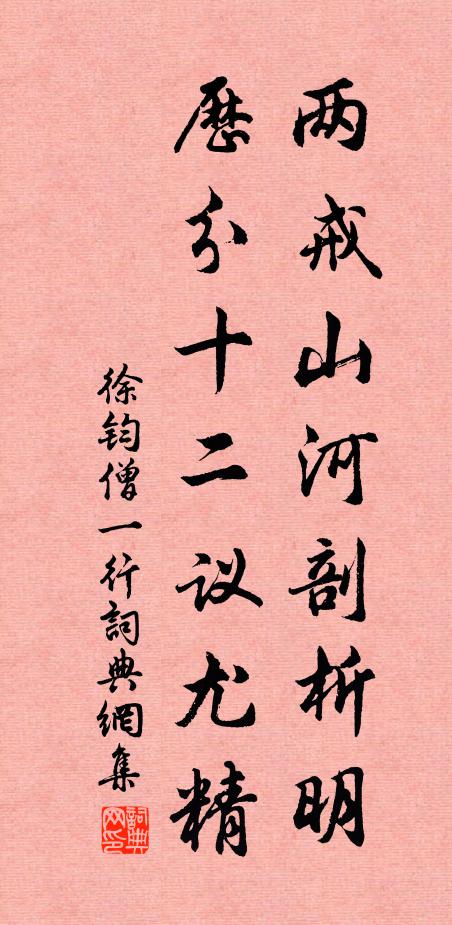 两戒山河剖析明
歷分十二议尤精
徐钧僧一行詞典網集
詞典网印